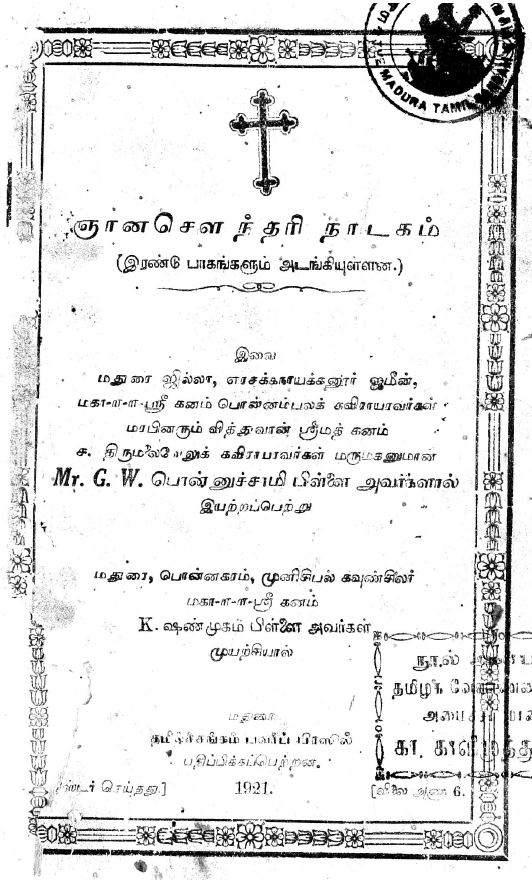 MADURA TAMIL
ஞானசௌந்தரி நாடகம்
(இரண்டு பாகங்களும் அடங்கியுள்ளன.)
இவை
மதுரை ஜில்லா, எரசக்கநாயக்கனூர் ஜமீன்,
மகா-ள-ள-ஸ்ரீ கனம் பொன்னம்பலக் கவிராயரவர்கள்
மரபினரும் வித்துவான் ஸ்ரீமத் கனம்
ச. திருமலைவேலுக் கவிராயரவர்கள் மருமகனுமான
Mr. G. W. பொன்னுச்சாமி பிள்ளை அவர்களால்
இயற்றப்பெற்று
மதுரை, பொன்னகரம், முனிசிபல் கவுன்சிலர்
மகா-ள-ள-ஸ்ரீ கனம்
K. ஷண்முகம் பிள்ளை அவர்கள்
முயற்சியால்
நூல்
தமிழ்
கா. காளிமுத்து
மதுரை
தமிழ்ச்சங்கம் பவர்ப் பிரஸில்
பதிப்பிக்கப்பெற்றன.
ஸ்டர் செய்தது.] 1921. [விலை அணா 6.